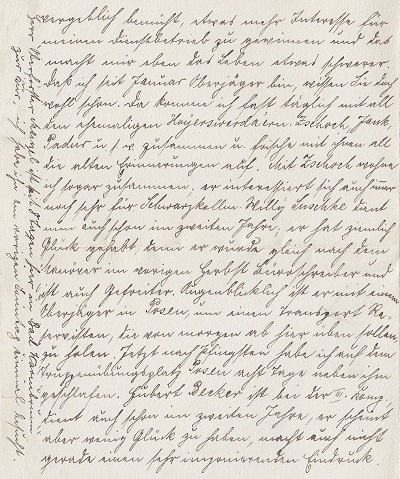 vergeblich bemüht, etwas mehr Interesse für
meinen Dienstbetrieb zu gewinnen und das
macht mir eben das Leben etwas schwerer.
Daß ich seit Januar Oberjäger bin, wissen Sie doch
wohl schon. Da komme ich fast täglich mit all
den ehemaligen Hoyerswerdaern: Zschoch, Jank,
Padur u. s. w. zusammen u. frische mit ihnen all
die alten Erinnerungen auf. Mit Zschoch wohne
ich sogar zusammen, er interessiert sich auch immer
noch sehr für Schwarzkollm. Willy Luschke dient
nun auch schon im zweiten Jahre, er hat ziemlich
Glück gehabt, denn er wurde gleich nach dem
Manöver im vorigen Herbst Büroschreiber und
ist auch Gefreiter. Augenblicklich ist er mit einem
Oberjäger in Posen, um einen Transport Re-
servisten, die von morgen ab hier üben sollen,
zu holen. Jetzt nach Pfingsten habe ich auf dem
Truppenübungsplatz Posen acht Tage neben ihm
geschlafen. Hubert Becker ist bei der II. Komp.
dient auch schon im zweiten Jahre, er scheint
aber wenig Glück zu haben, macht auch nicht
gerade einen sehr imponierenden Eindruck.
Herr Oberförster ist seit 8 Tagen hier in Bad Warmbrunn
zur Kur, ich habe ihn am vorigen Sonntag einmal besucht.